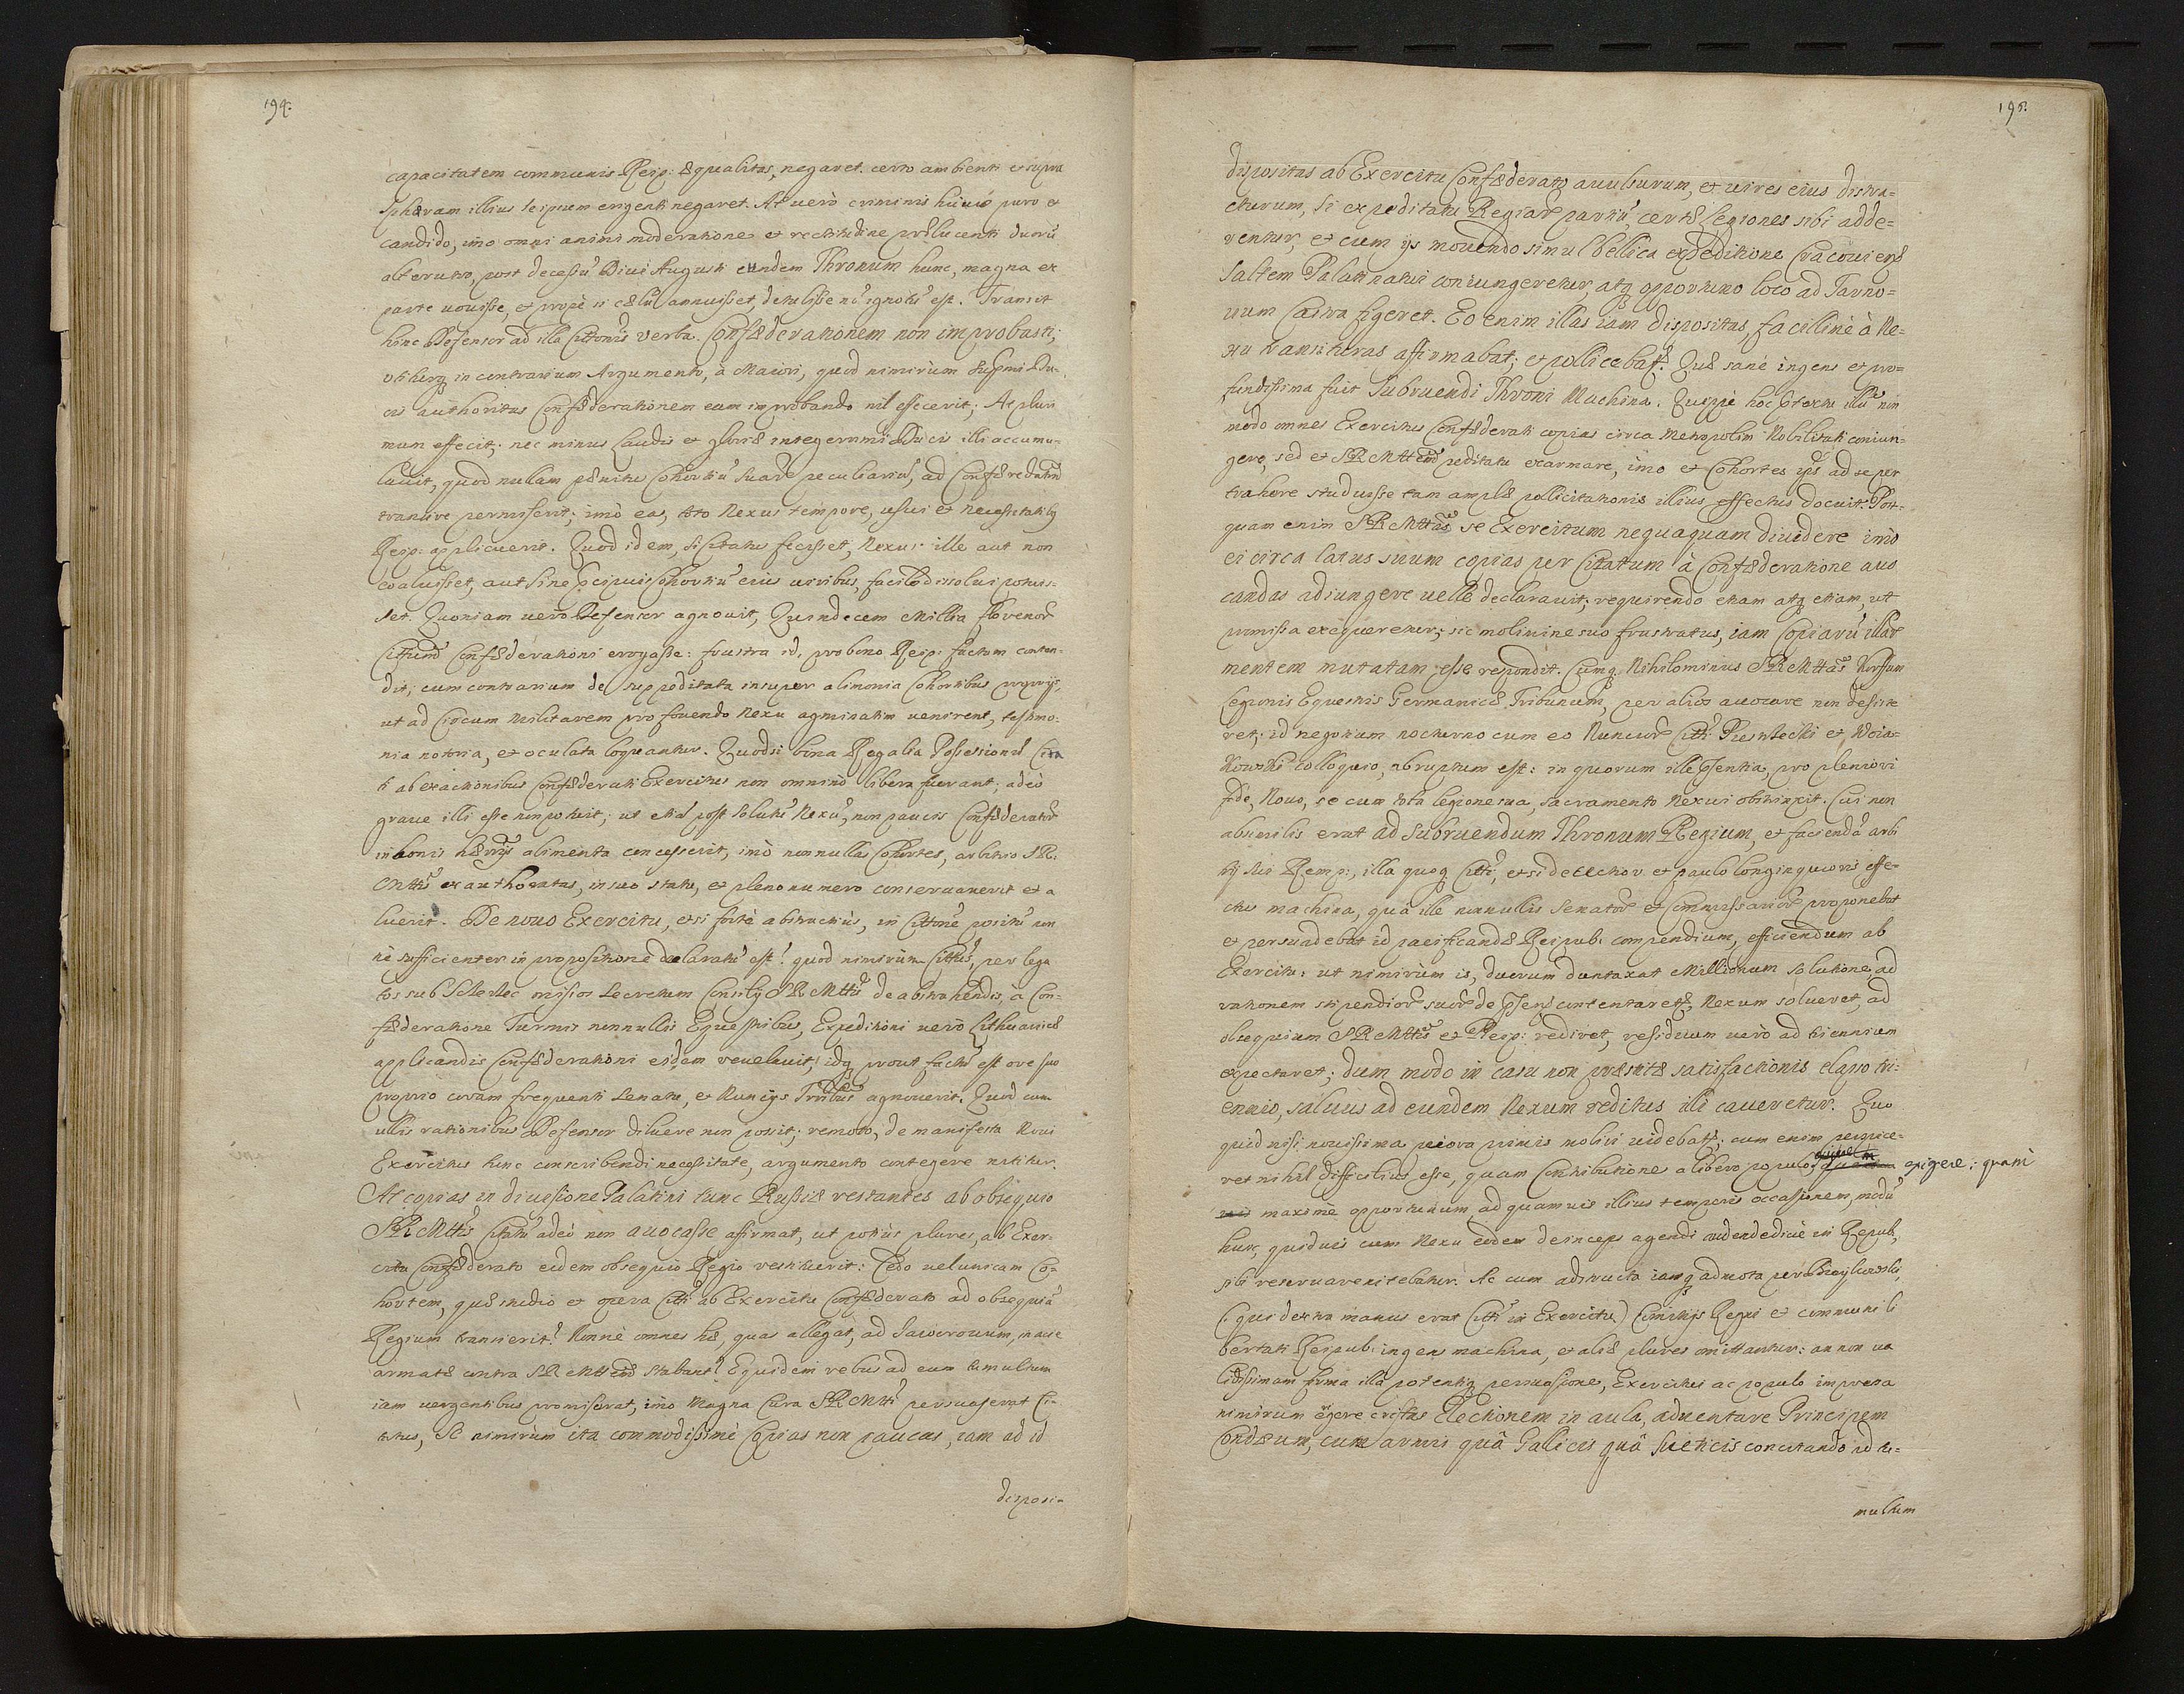 194.
capacitatem communis Reip: æqualitas, negaret. certo ambienti et supra
sphæram illius seipsum erigenti negaret. At verò criminis huius puro et
candido, imo omni animi moderatione et rectitudine prælucenti duorũ
alterutro, post decessũ Divi Augusti eundem Thronum hunc, magna ex
parte vovisse, et propè si cælũ annuisset, detulisse nõ ignotũ est. Transit
hinc Defensor ad illa Cittonis verba. Confæderationem non improbasti;
utiturq in contrarium Argumento, à Maiori, quod nimirùm Supmi Du-
cis authoritas Confæderationem eam improbando nil effecerit; At pluri
mum effecit; nec minus laudis et gloriæ integerrimi Ducis illi accumu-
lavit, quod nullam penitus Cohortiũ suar peculiariũ, ad Confæderatũ
transire permiserit; imò eas, toto Nexus tempore, usui et necessitatibq
Reip: applicuerit. Quod idem, si Citatus fecisset, Nexus ille aut non
coaluisset, aut sine pcipuis Cohortiũ eius viribus, facile dissolui potuis-
set. Quoniam verò Defensor agnovit, Quindecem Millia florenor
Cittum Confæderationi erogasse: frustra id, pro bono Reip: factum conten-
dit; cum contrarium de suppeditata insuper alimonia Cohortibus proprijs,
ut ad Circum Militarem pro fovendo Nexu agminatim venirent, testimo-
nia notoria, et oculata loquantur. Quodsi bona Regalia Possessionis Cita
ti ab exactionibus Confæderati Exercitus non omninò libera fuerant; adeò
grave illi esse non potuit; ut etiã post solutũ Nexũ, non paucos Confæderator
in bonis hærijs alimenta concesserit, imò nonnullas Cohortes, arbitrio S.R.
Mttis exauthoratas, in suo statu, et pleno numero conservaverit et a
luerit. De novo Exercitu, etsi fortè abstractiùs, in Cittone positũ non
nè sufficienter in propositione declaratũ est? quod nimirùm Cittus, per lega
tos sub Scherlec missos Secretum Consilij S R Mttis de abstrahendis, à Con-
fæderatione Turmis nonnullis Equestribus, Expeditioni verò Lithuanicæ
applicandis Confæderationi eidem revelavit, idq prout factũ est ore suo
proprio coram frequenti Senatu, et Nuncijs Trribus agnoverit. Quod cum
ullis rationibus Defensor diluere non possit; remoto, de manifesta Novi
Exercitus hunc conscribendi necessitate, argumento contegere nititur.
At copias in divisione Palatini tunc Russiæ restantes ab obsequio
S R Mttis Citatũ adeò non avocasse affirmat, ut potiùs plures, ab Exer-
citu Confæderato eidem obsequio Regio restituerit: Cedo vel unicam Co-
hortem, quæ studio et opera Citti ab Exercitu Confæderato ad obsequiũ
Regium transierit? Nonnè omnes hæ, quas allegat, ad Jaworovum, in acie
armatæ contra S R Mttem stabant? Equidem rebus ad eum tumultum
iam vergentibus promiserat, imò Magna Cura S R Mtti persuaserat Ci-
tatus, Se nimirùm ita commodissimè Copias non paucas, iam ad id
disposi-
195.
dispositas ab Exercitu Confæderato avulsurum, et vires eius distra-
cturum, si expeditatu Regiar partiũ, certæ legiones sibi adde-
rentur, et cum ijs movendo simul bellica expeditione Cracoviens
Saltem Palatinatui coniungeretur, atq opportuno loco ad Tarno-
vum Castra figeret. Eo enim illas iam dispositas, facillimè à Ne-
xu transituras affirmabat; et pollicebatr. Quæ sanè ingens et pro-
fundissima fuit subruendi Throni Machina. Quippè hoc ptextu illũ non
modo omnes Exercitus Confæderati copias circa Metropolim Nobilitati coniun-
gere, sed et S R Mttem peditatu exarmare, imo et Cohortes ips ad se per
trahere studuisse tam amplæ pollicitationis illius effectus docuit. Post-
quam enim S R Mttas se Exercitum nequaquam dividere imò
ei circa latus suum copias per Citatum à Confæderatione avo
candas adiungere velle declaravit; requirendo etiam atq etiam, ut
promissa exequeretur; sic molimine suo frustratus, iam Copiarũ illar
mentem mutatam esse respondit. Cumq Nihilominus S R Mttas Kursum
Legionis Equestris Germanicæ Tribunum, per alios avocare non desiste
ret; id negotium nocturno cum eo Nuncior Citti Pieniecki et, Woia-
kowski colloquio, abruptum est: in quorum ille psentia, pro pleniori
fide, Novo, se cum tota legione sua, sacramento Nexui obstrinxit. Cui non
absimilis erat ad subruendum Thronum Regium, et faciendã arbi
trij sui Remp:, illa quoq Citti, etsi detectior et paulo longinquioris effe-
ctus machina, quã ille nonnullis Senator et Commissarior proponebat
et persuadebat id pacificandæ Reipub. compendium, efficiendum ab
Exercitu: ut nimirùm is, duorum duntaxat Millionum solutione, ad
rationem stipendior suor de psenti contentaretr, Nexum solveret, ad
obsequium S R Mttis et Reip: rediret, residuum verò ad triennium
expectaret; dum modo in casu non præstitæ satisfactionis elapso tri-
ennio, salvus ad eundem Nexum reditus illi caveretur. Quo
quid nisi novissima peiora primis moliri videbatr; cum enim perspice-
ret nihil difficilius esse, quam Contributione a libero populo exigere; quam
maximè opportunum, ad quamvis illius temporis occasionem, modũ
hunc, quidvis cum Nexu eodem deinceps agendi audendi in Repub,
sibi reservare nitebatur. Ac cum adstructa iamq admota per
(qui dextra manus erat Citti in Exercitu) Comitijs Regni et communi li
bertati Reipub. ingens machina, et aliæ plures omittantur: an non va
lidissimam firma illa potentiq persuasione, Exercitui ac populo impressa
nimirum Electionem in aula, adventare Principem
Condæum, cum armis quà Galicis quà Sueticis concitando id tu-
multum